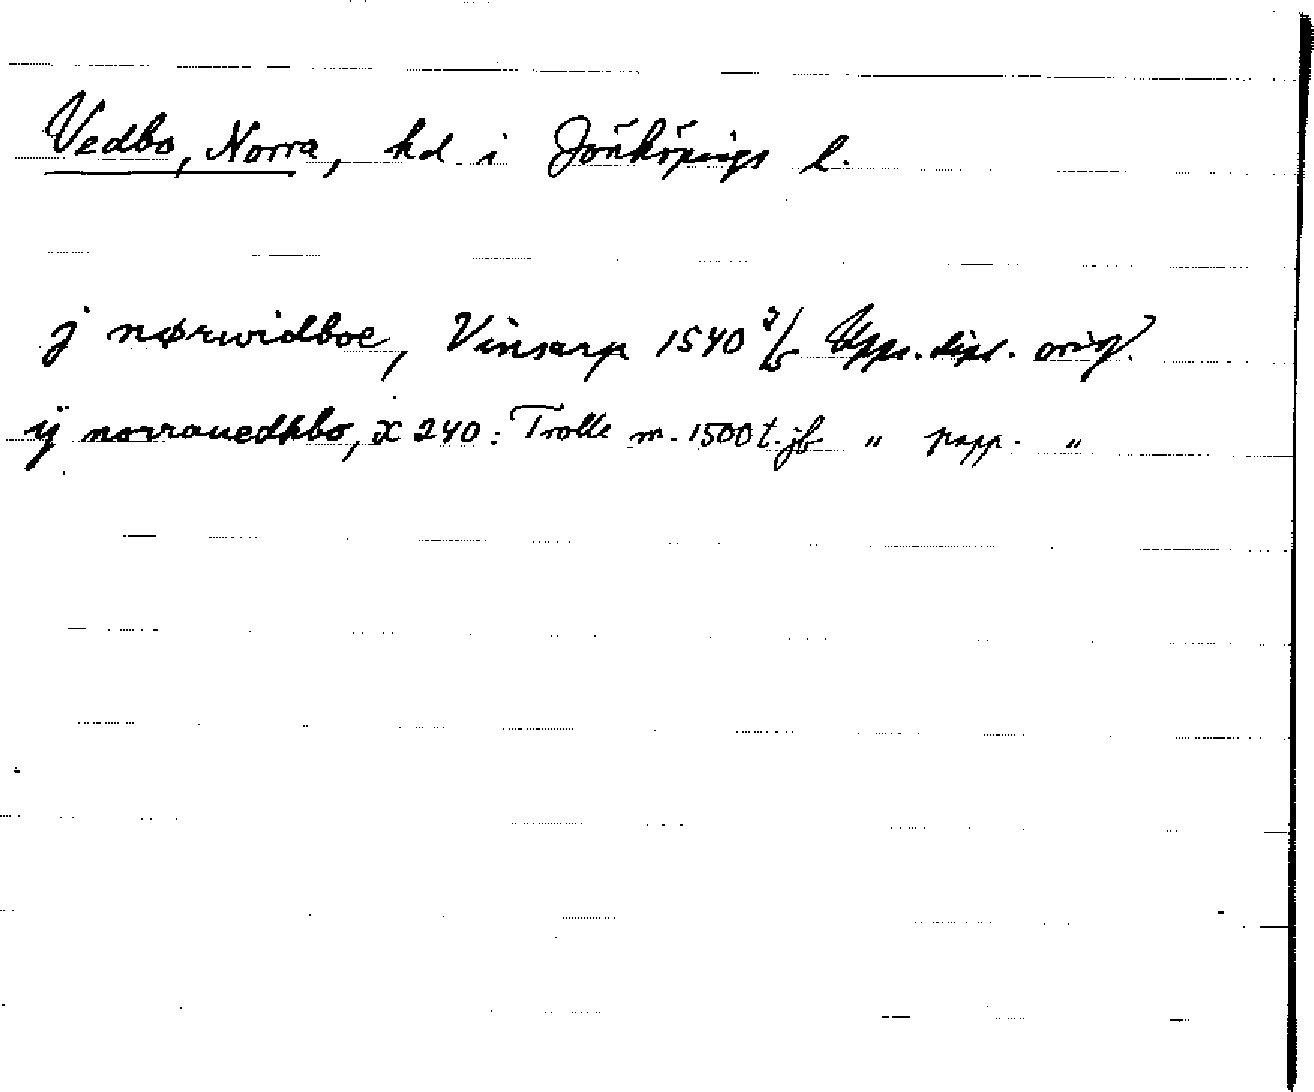 Vedbo, Norra, hd i Jönköpings l.
j nørwidboe, Vinsarp 1540 3/5 Upps. dipl. orig.
ij norrauedhbo, X 240: Trolle m. 1500 t. jb " papp. "